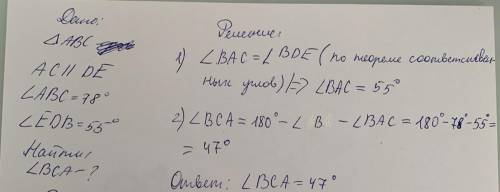 Дано:
△ABC
AC || DE
∠ABC = 78°
∠EDB = 55°
Найти:
∠BCA - ?
Решение:
1) ∠BAC = ∠BDE (по теореме соответствен-
ных углов) |=> ∠BAC = 55°
2) ∠BCA = 180° - ∠B - ∠BAC = 180° - 78° - 55° =
= 47°
Ответ: ∠BCA = 47°